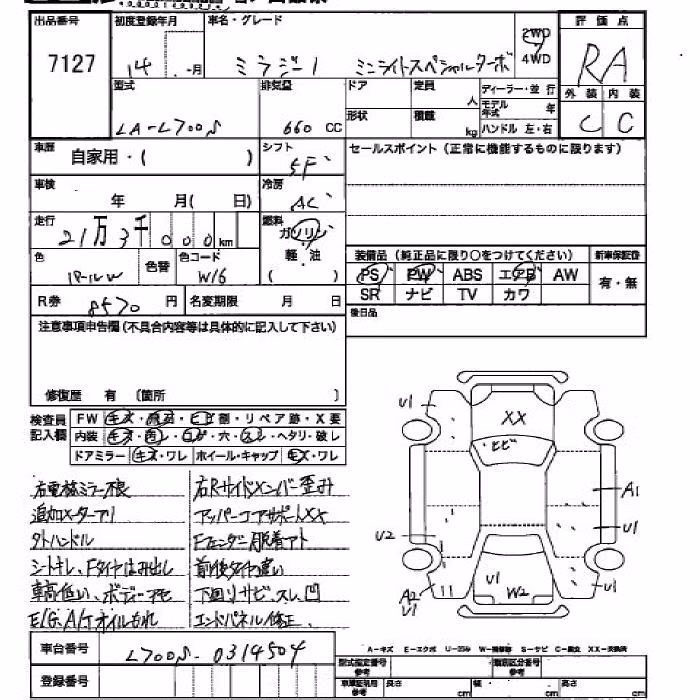 出品番号 初度登録年月 車名・グレード 2WD 4WD 評価点
7127 14 年 -月 ミラジーノ ミニライトスペシャルターボ RA
型式 排気量 ドア 定員 人 ディーラー・並行 外装 内装
LA-L700S 660 CC 形状 積載 kg モデル年式 年 ハンドル 左・右 C C
車歴 自家用・( ) シフト 5F セールスポイント(正常に機能するものに限ります)
車検 年 月( 日) 冷房 AC
走行 21万3千000km 燃料 ガソリン 軽・油 ( )
色 パールW 色替 色コード W16
装備品(純正品に限り○をつけてください) 新車保証書
PS PW ABS エアB AW 有・無
SR ナビ TV カワ
R券 8570 円 名変期限 月 日
後日品
注意事項申告欄(不具合内容等は具体的に記入して下さい)
修復歴 有 〔箇所 〕
検査員記入欄 FW キズ・飛石・ヒビ割・リペア跡・X要
内装 キズ・コゲ・穴・スレ・ヘタリ・破レ
ドアミラー キズ・ワレ ホイール・キャップ キズ・ワレ
U1 XX ヒビ A1 U1 U2 U1 W2 A2 U1 U1
右電格ミラー不良 右Rサイドメンバー歪み
追加メーターアリ アッパーコアサポートXX
外ハンドル Fフェンダー脱着アト
シートキレ、Fタイヤはみ出し 前後タイヤ違い
車高低い、ボディーヤモ 下回りサビ、スレ、凹
E/G、A/Tオイルもれ エンドパネル修正
車台番号 L700S-0314504
登録番号
A-キズ E-エクボ U-凹み W-補修跡 S-サビ C-腐食 XX-交換済
型式指定番号 参考 類別区分番号 参考
車庫証明用 参考 長さ cm 幅 cm 高さ cm